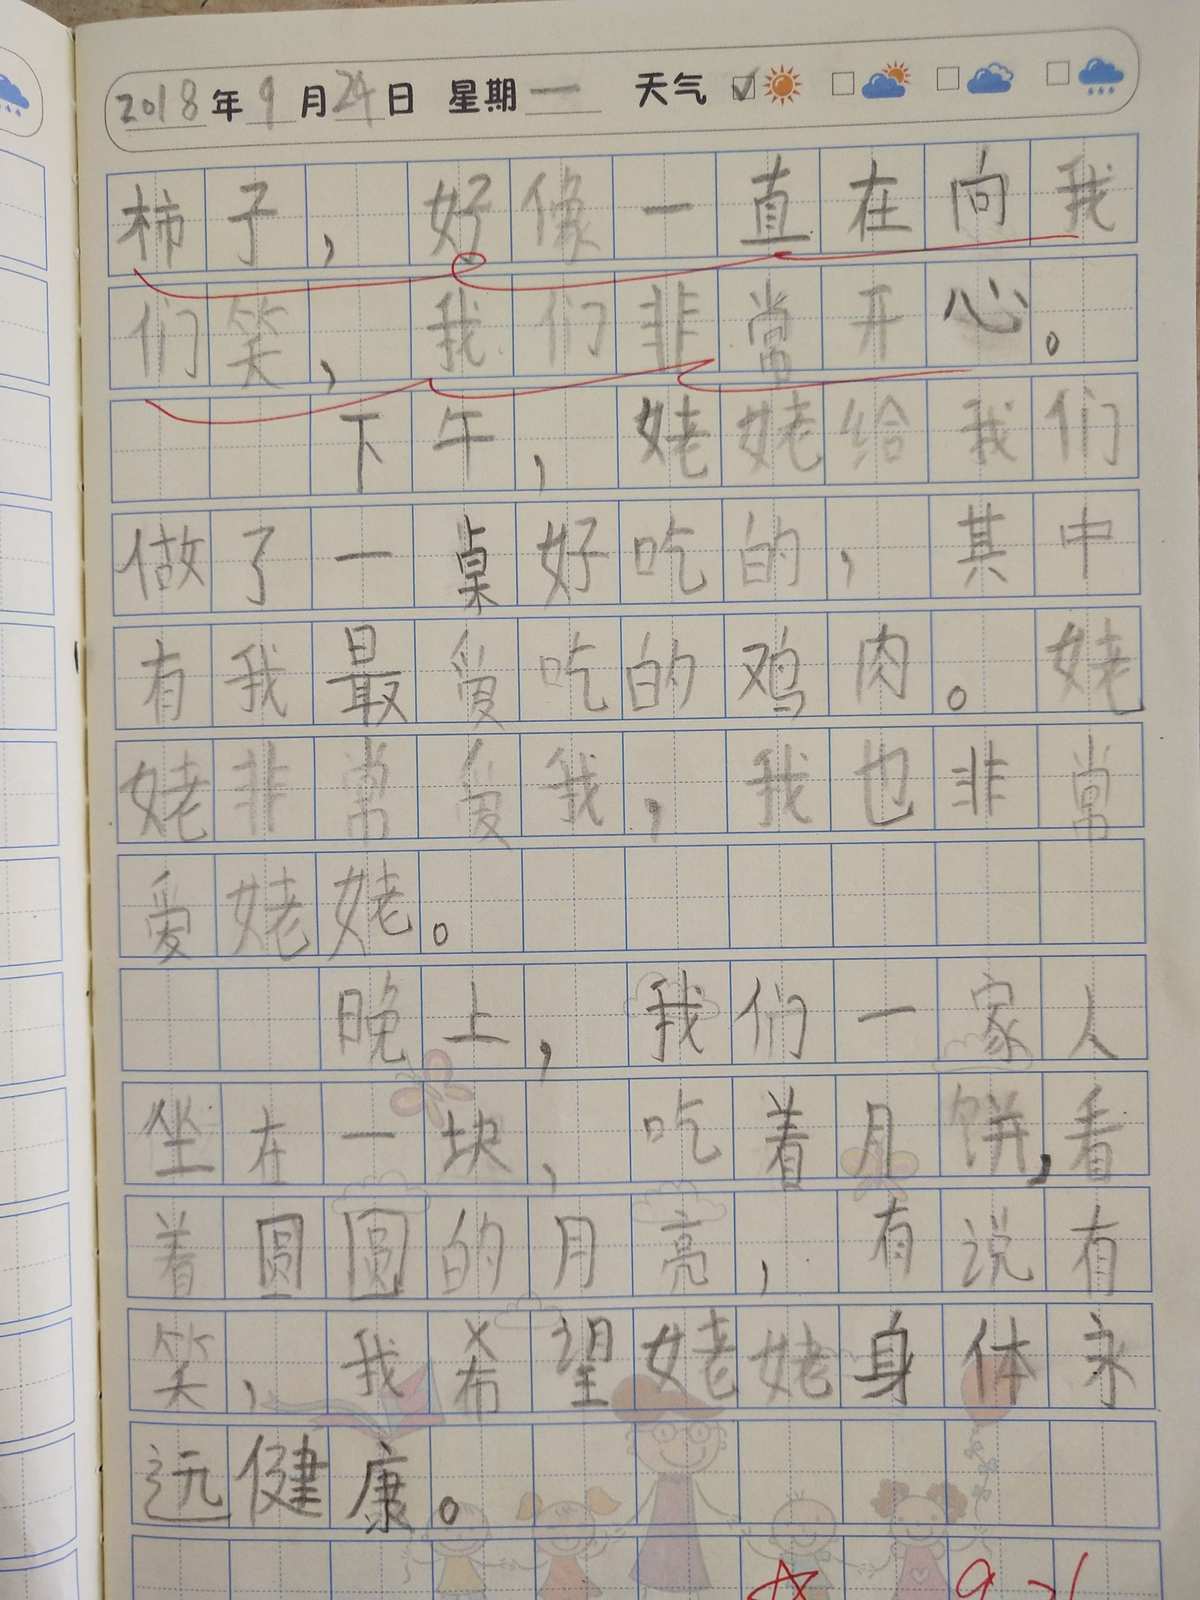 2018年9月24日 星期一 天气
柿子，好像一直在向我
们笑，我们非常开心。
下午，姥姥给我们
做了一桌好吃的，其中
有我最爱吃的鸡肉。姥
姥非常爱我，我也非常
爱姥姥。
晚上，我们一家人
坐在一块，吃着月饼，看
着圆圆的月亮，有说有
笑，我希望姥姥身体永
远健康。